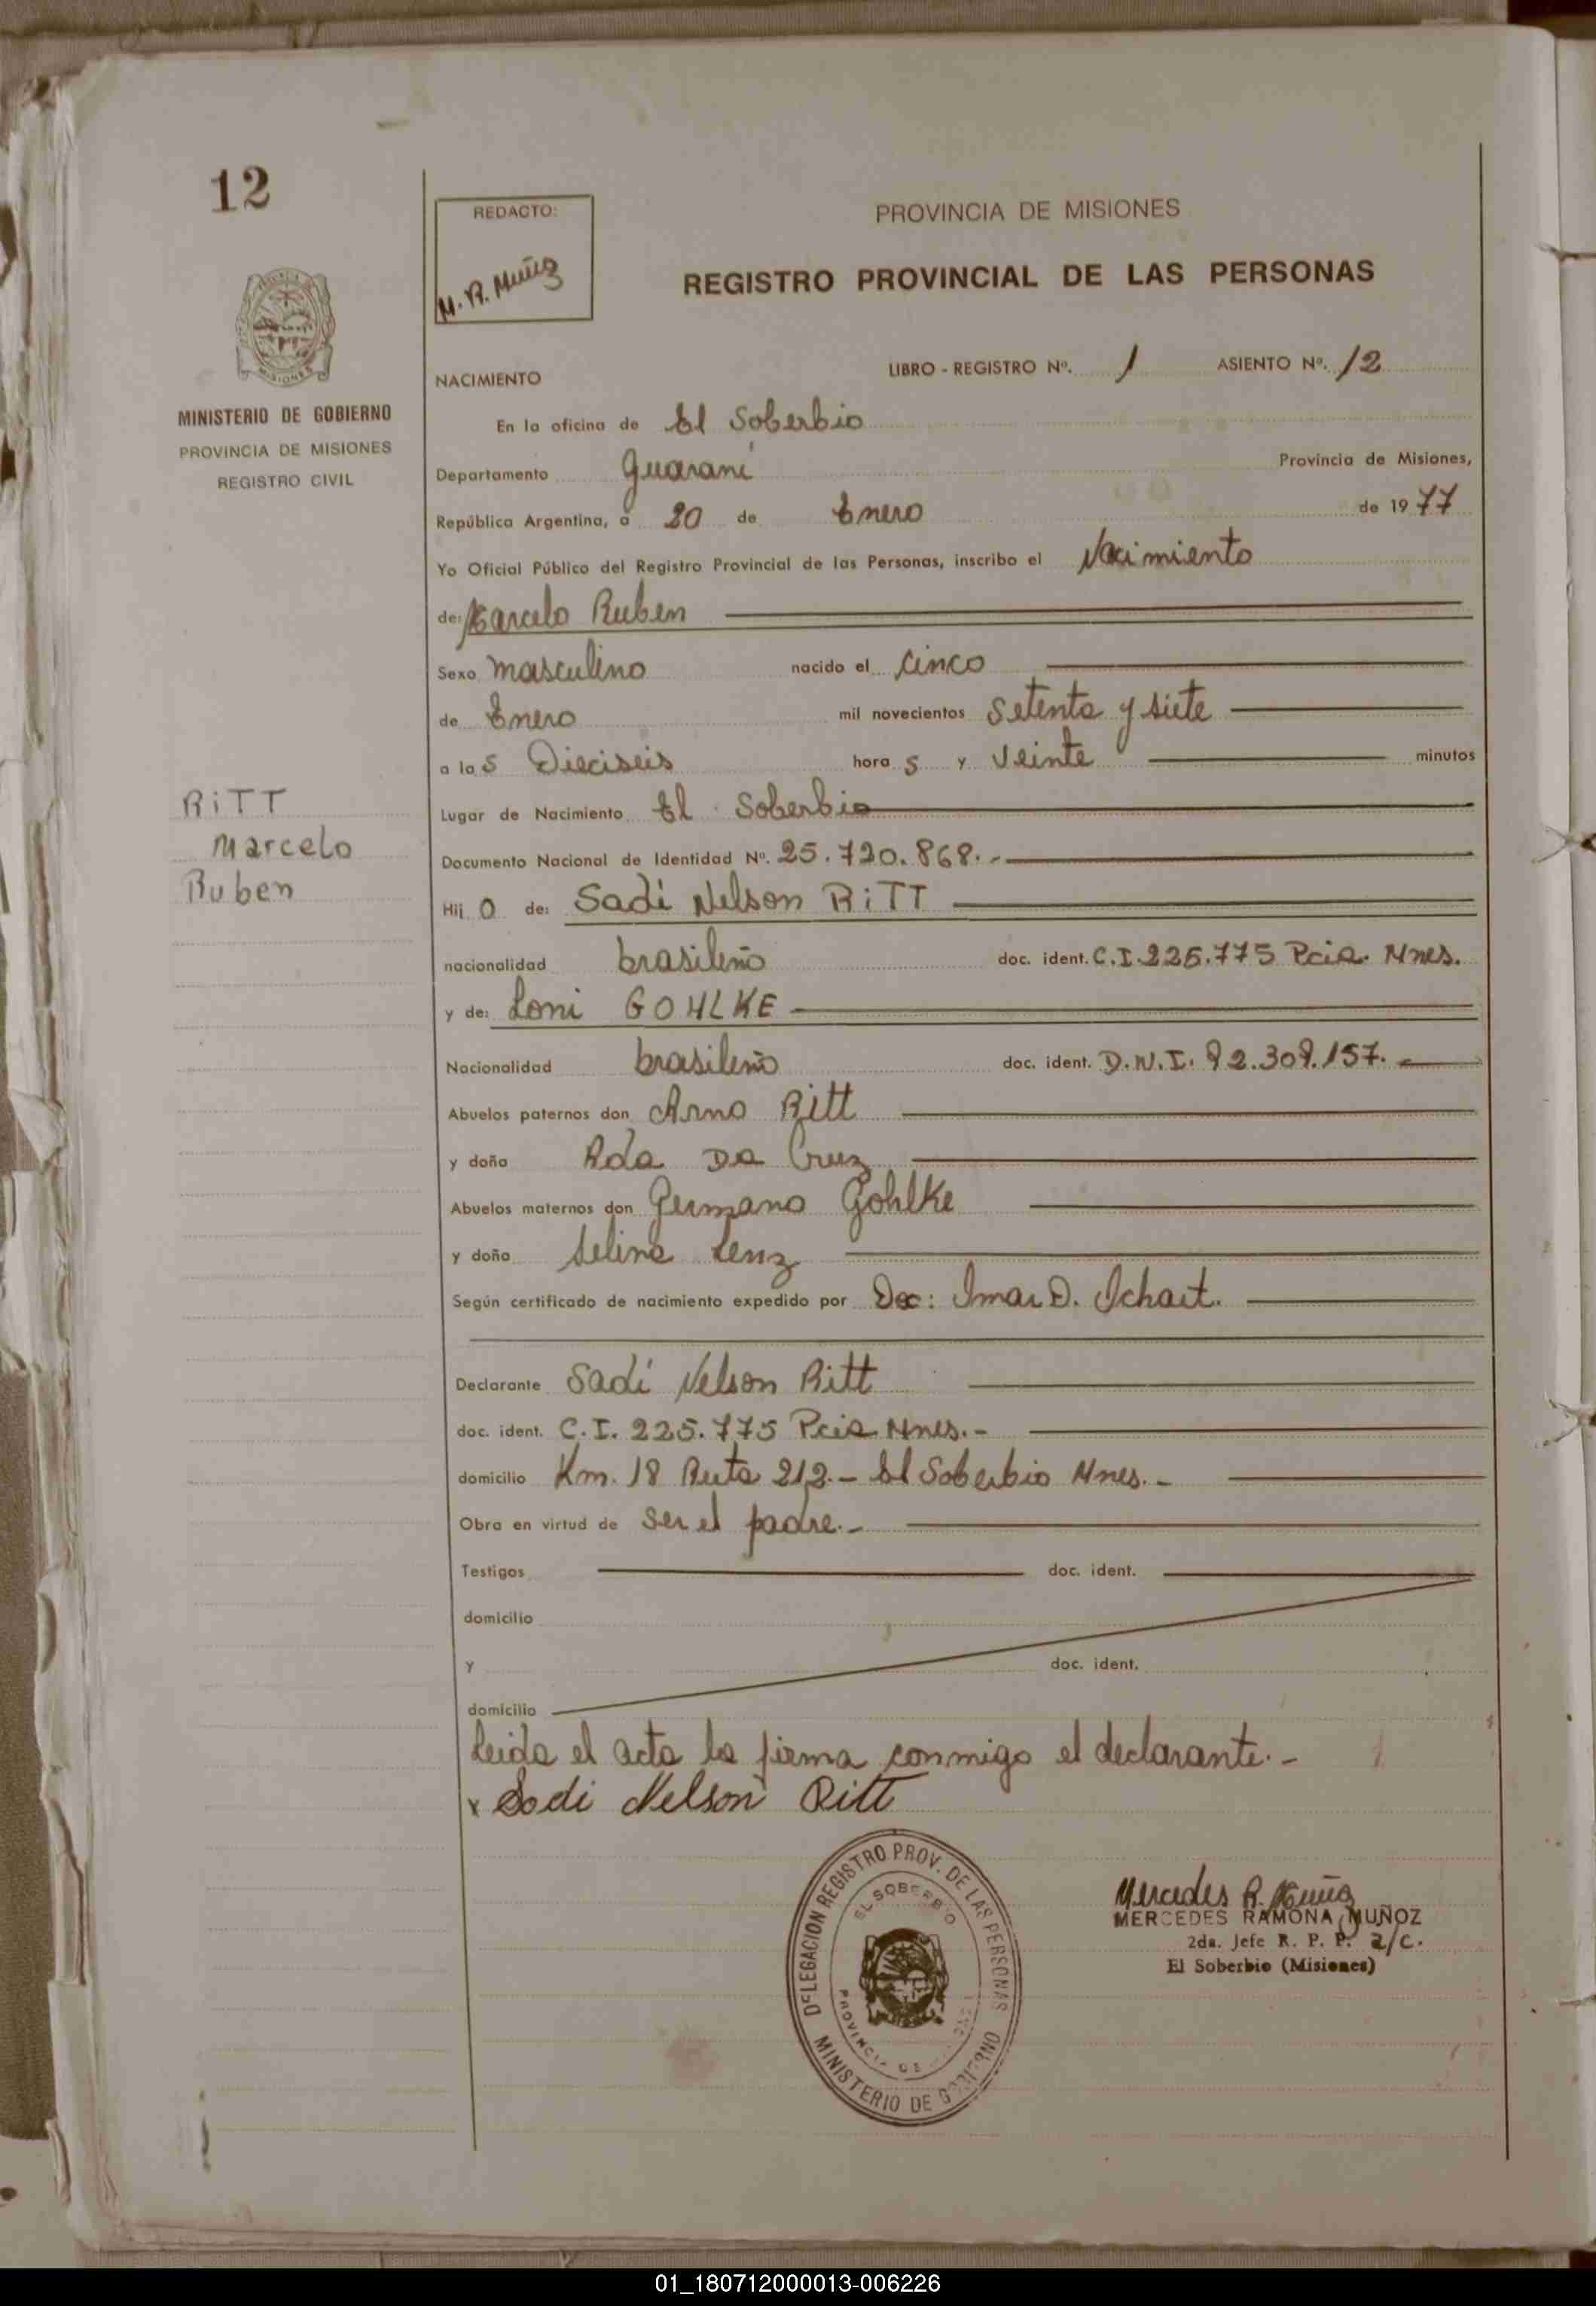 12
REDACTO:
M. R. Muñoz
PROVINCIA DE MISIONES
REGISTRO PROVINCIAL DE LAS PERSONAS
MINISTERIO DE GOBIERNO
PROVINCIA DE MISIONES
REGISTRO CIVIL
NACIMIENTO
LIBRO - REGISTRO Nº. 1 ASIENTO Nº. 12
En la oficina de El Soberbio
Departamento Guaraní Provincia de Misiones,
República Argentina, a 20 de Enero de 1977
Yo Oficial Público del Registro Provincial de las Personas, inscribo el Nacimiento
de: Marcelo Ruben
Sexo masculino nacido el cinco
de Enero mil novecientos setenta y siete
a las Dieciseis horas y veinte minutos
Lugar de Nacimiento El Soberbio
RiTT
Marcelo
Ruben
Documento Nacional de Identidad Nº. 25.720.868.-
Hijo de: Sadi Nelson RiTT
nacionalidad brasileño doc. ident. C.I. 225.775 Pcia. Mnes.
y de: Loni GOHLKE
Nacionalidad brasileño doc. ident. D.N.I. 92.309.157.-
Abuelos paternos don Arno Ritt
y doña Ada Da Cruz
Abuelos maternos don Germano Gohlke
y doña Selina Lenz
Según certificado de nacimiento expedido por Doc: Imar D. Ichart.
Declarante Sadi Nelson Ritt
doc. ident. C.I. 225.775 Pcia Mnes.-
domicilio Km. 18 Ruta 212.- El Soberbio Mnes.-
Obra en virtud de ser el padre.-
Testigos doc. ident.
domicilio
y doc. ident.
domicilio
Leida el acta la firma conmigo el declarante.-
x Sadi Nelson Ritt
DELEGACION REGISTRO PROV. DE LAS PERSONAS
EL SOBERBIO
PROVINCIA DE
MINISTERIO DE GOBIERNO
Mercedes R. Muñoz
MERCEDES RAMONA MUÑOZ
2da. Jefe R. P. P. a/c.
El Soberbio (Misiones)
01_180712000013-006226